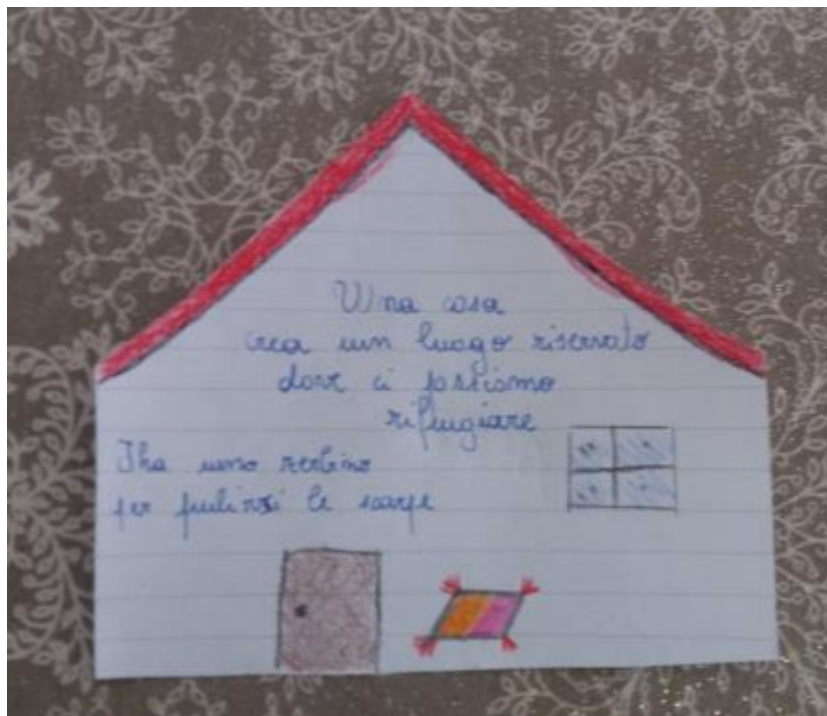 Una casa
crea un luogo riservato
dove ci possiamo
rifugiare
Ha uno zerbino
per pulirsi le scarpe